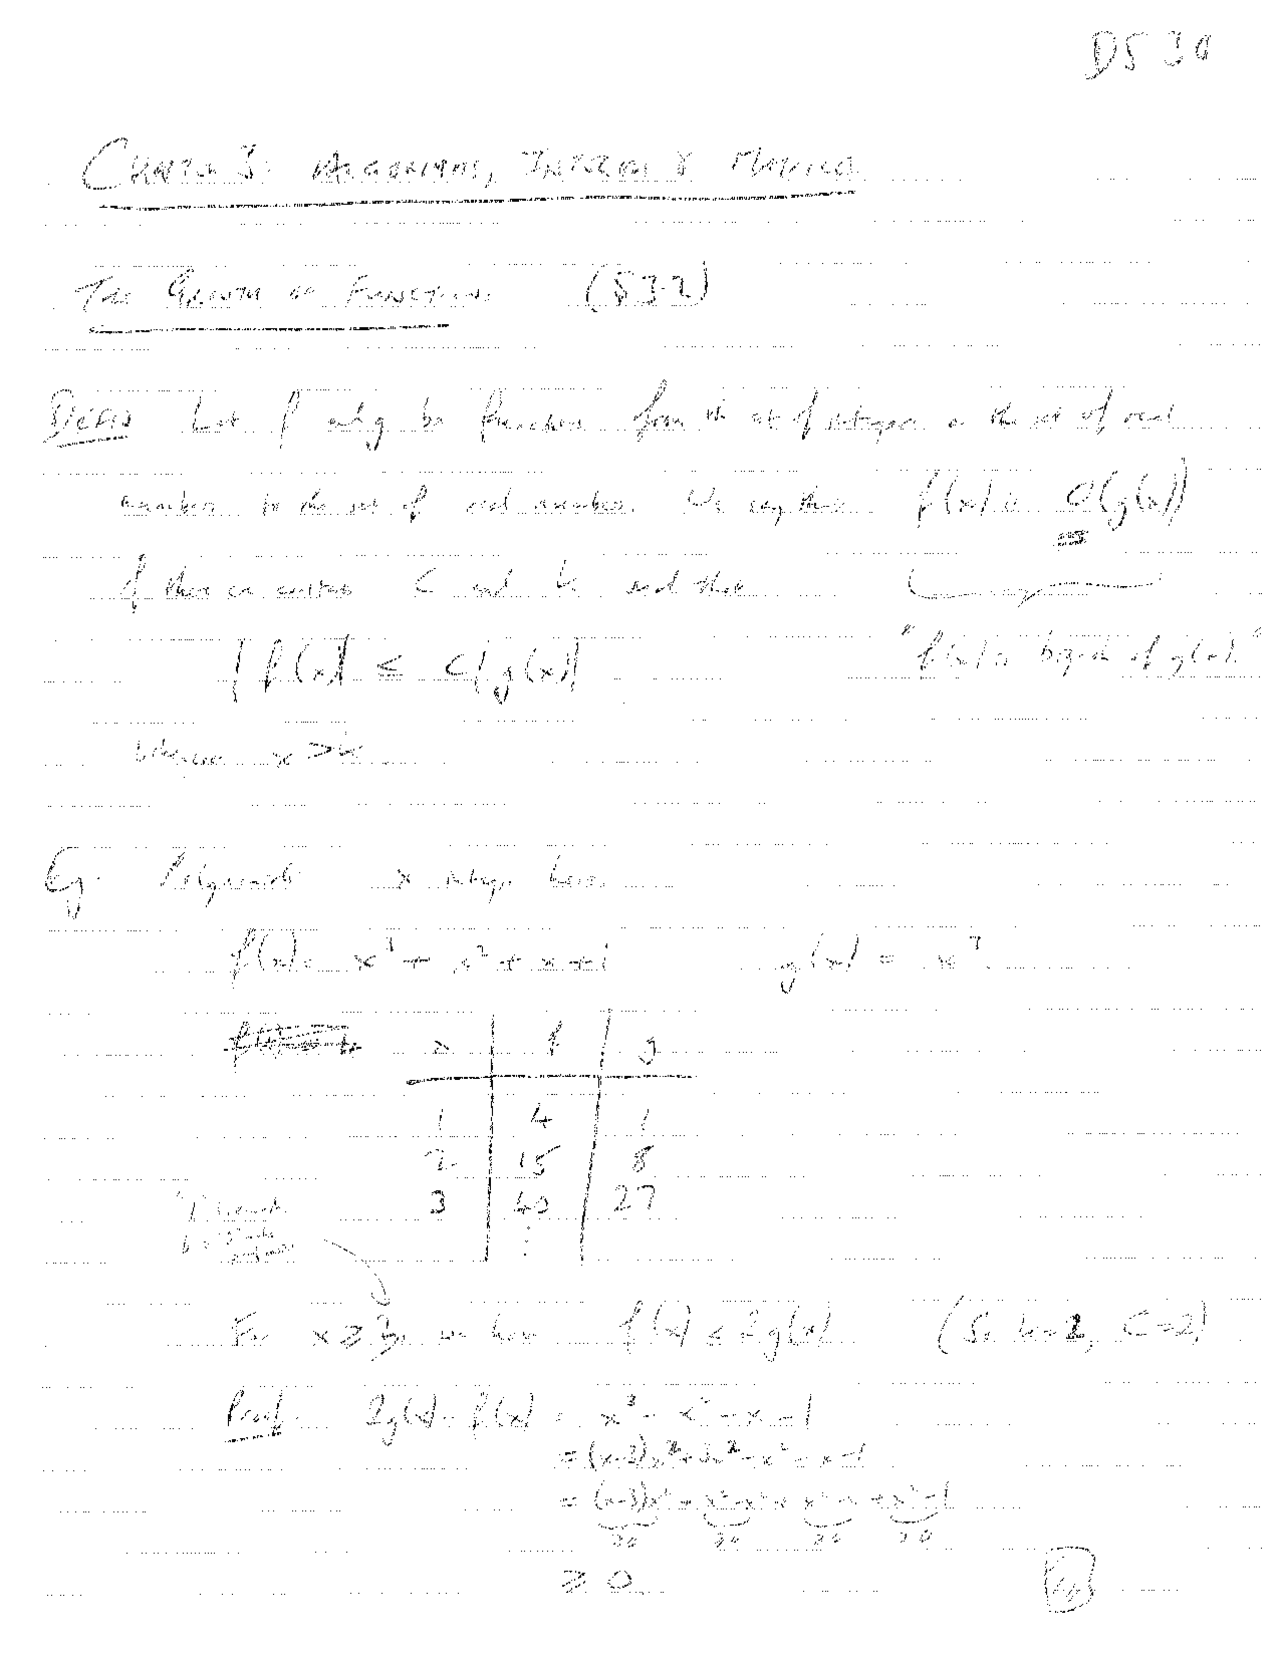 DS 3a
Chapter 3: Algorithms, Integers & Matrices
The Growth of Functions (§3.2)
Defn Let f and g be functions from the set of integers or the set of real
numbers to the set of real numbers. We say that f(x) is O(g(x))
if there are constants C and k such that
|f(x)| ≤ C|g(x)| "f(x) is big-oh of g(x)."
whenever x > k
Eg. Polynomials x integer here.
f(x) = x³ + x² + x + 1 g(x) = x³
x f g
1 4 1
2 15 8
3 40 27
⋮
For x ≥ 3, we have f(x) ≤ 2g(x). (So k=2, C=2)
Proof. 2g(x) - f(x) = x³ - x² - x - 1
= (x-3)x² + 3x² - x² - x - 1
= (x-3)x² + x² - x² + x² - x + x² - 1
≥0 ≥0 ≥0 ≥0
≥ 0